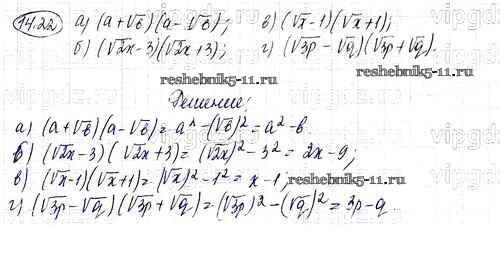 14.22 а) (a+√в)(a-√в); в) (√x-1)(√x+1);
б) (√2x-3)(√2x+3); г) (√3p-√q)(√3p+√q).
reshebnik5-11.ru reshebnik5-11.ru
Решение:
а) (a+√в)(a-√в)=a²-(√в)²=a²-в.
б) (√2x-3)(√2x+3)=(√2x)²-3²=2x-9;
в) (√x-1)(√x+1)=(√x)²-1²=x-1; reshebnik5-11.ru
г) (√3p-√q)(√3p+√q)=(√3p)²-(√q)²=3p-q.